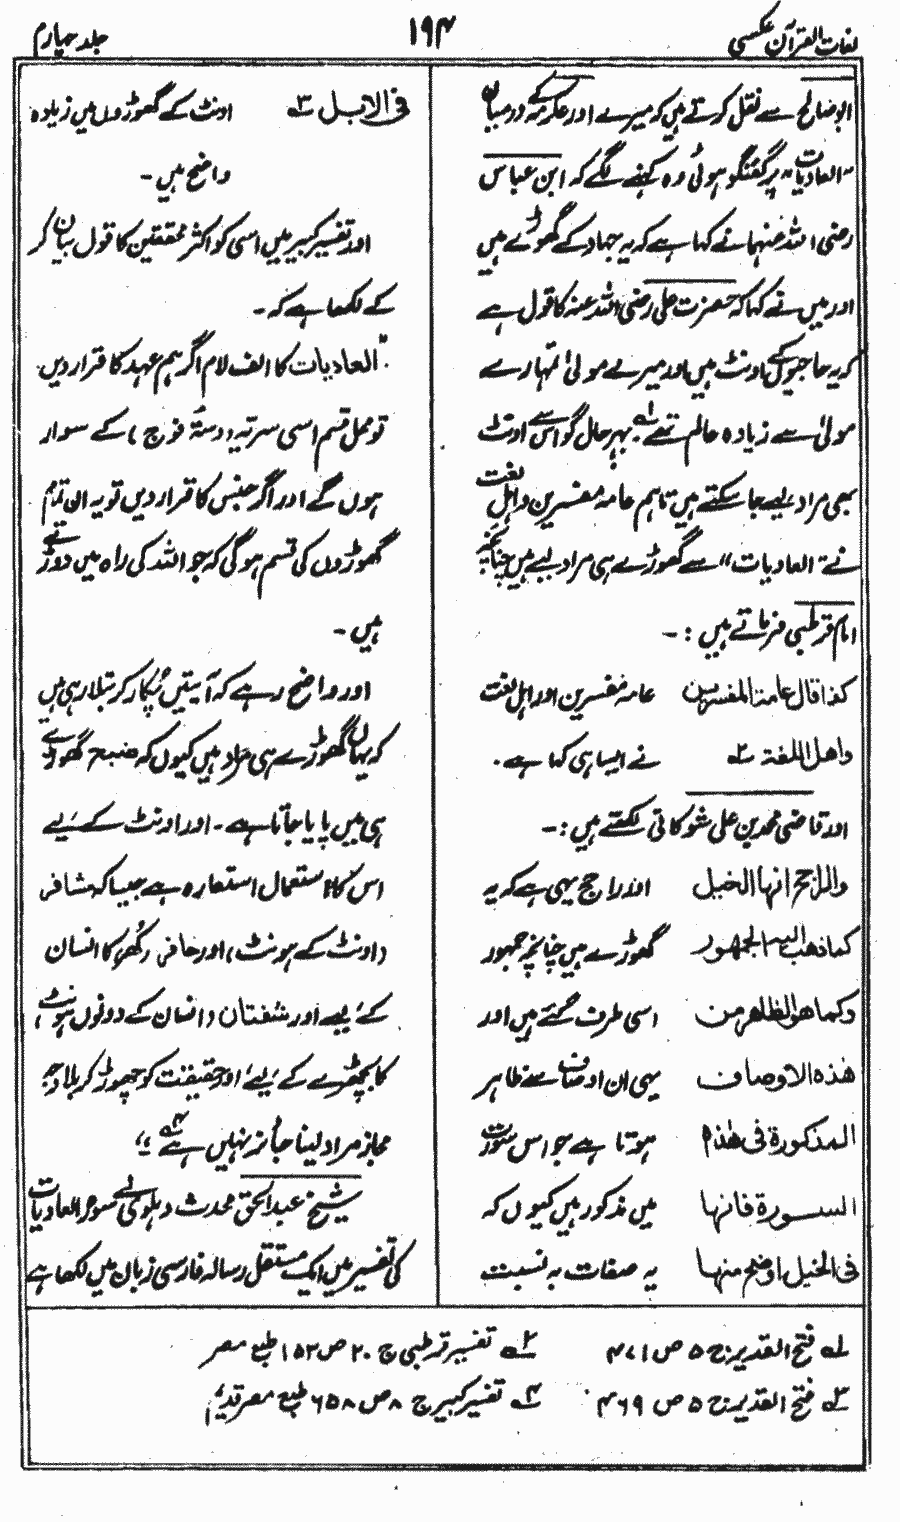 لغات القرآن عکسی
۱۹۴
جلد چہارم
ابوصالح سے نقل کرتے ہیں کہ میرے اور عکرمہ کے درمیان
"العادیات" پر گفتگو ہوئی وہ کہنے لگے کہ ابن عباس
رضی اللہ عنہما نے کہا ہے کہ یہ جہاد کے گھوڑے ہیں
اور میں نے کہا کہ حضرت علی رضی اللہ عنہ کا قول ہے
کہ یہ حاجیوں کے اونٹ ہیں اور میرے مولیٰ تمہارے
مولیٰ سے زیادہ عالم تھے لہ بہر حال گو اس سے اونٹ
بھی مراد لیے جا سکتے ہیں تاہم عامہ مفسرین و اہل لغت
نے "العادیات" سے گھوڑے ہی مراد لیے ہیں چنانچہ
امام قرطبی فرماتے ہیں :-
کذا قال عامة المفسرین عامہ مفسرین اور اہل لغت
واهل اللغة ۲ہ نے ایسا ہی کہا ہے.
اور قاضی محمد بن علی شوکانی لکھتے ہیں :-
والراجح انها الخیل اور راجح یہی ہے کہ یہ
کما ذهب الیه الجمهور گھوڑے ہیں چنانچہ جمہور
وکما هو الظاهر من اسی طرف گئے ہیں اور
هٰذه الاوصاف یہی ان اوصاف سے ظاہر
المذکورة فی هٰذہ ہوتا ہے جو اس سورت
السورة فانها میں مذکور ہیں کیوں کہ
فی الخیل اوضح منها یہ صفات بہ نسبت
فی الابل ۳ہ اونٹ کے گھوڑوں میں زیادہ
واضح ہیں -
اور تفسیر کبیر میں اسی کو اکثر محققین کا قول بیان کر
کے لکھا ہے کہ -
"العادیات کا الف لام اگر ہم عہد کا قرار دیں
تو محل قسم اسی سرتیہ (دستۂ فوج) کے سوار
ہوں گے اور اگر جنس کا قرار دیں تو یہ ان تمام
گھوڑوں کی قسم ہوگی کہ جو اللہ کی راہ میں دوڑتے
ہیں -
اور واضح رہے کہ آیتیں پکار کر بتلا رہی ہیں
کہ یہاں گھوڑے ہی مراد ہیں کیوں کہ ضبح گھوڑے
ہی میں پایا جاتا ہے - اور اونٹ کے لیے
اس کا استعمال استعارہ ہے جیسا کہ مشافر
(اونٹ کے ہونٹ) اور حافر (کُھر) کا انسان
کے لیے اور شفتان (انسان کے دونوں ہونٹ)
کا بچھڑے کے لیے اور حقیقت کو چھوڑ کر بلا وجہ
مجاز مراد لینا جائز نہیں ہے ۴ہ"
شیخ عبد الحق محدث دہلوی نے سورہ العادیات
کی تفسیر میں ایک مستقل رسالہ فارسی زبان میں لکھا ہے
لہ فتح القدیر ج ۵ ص ۴۷۱ ۲ہ تفسیر قرطبی ج ۲۰ ص ۱۵۲ طبع مصر
۳ہ فتح القدیر ج ۵ ص ۴۶۹ ۴ہ تفسیر کبیر ج ۸ ص ۶۵۸ طبع مصر قدیم